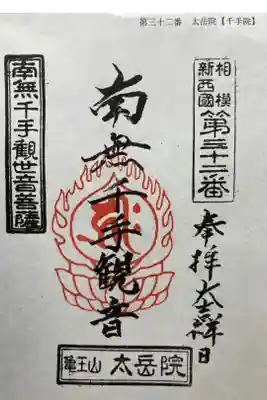 第三十二番　太岳院【千手院】
相模
新西國
第三十二番
奉拝大吉祥日
南無千手観音
南無千手觀世音菩薩
亀王山 太岳院